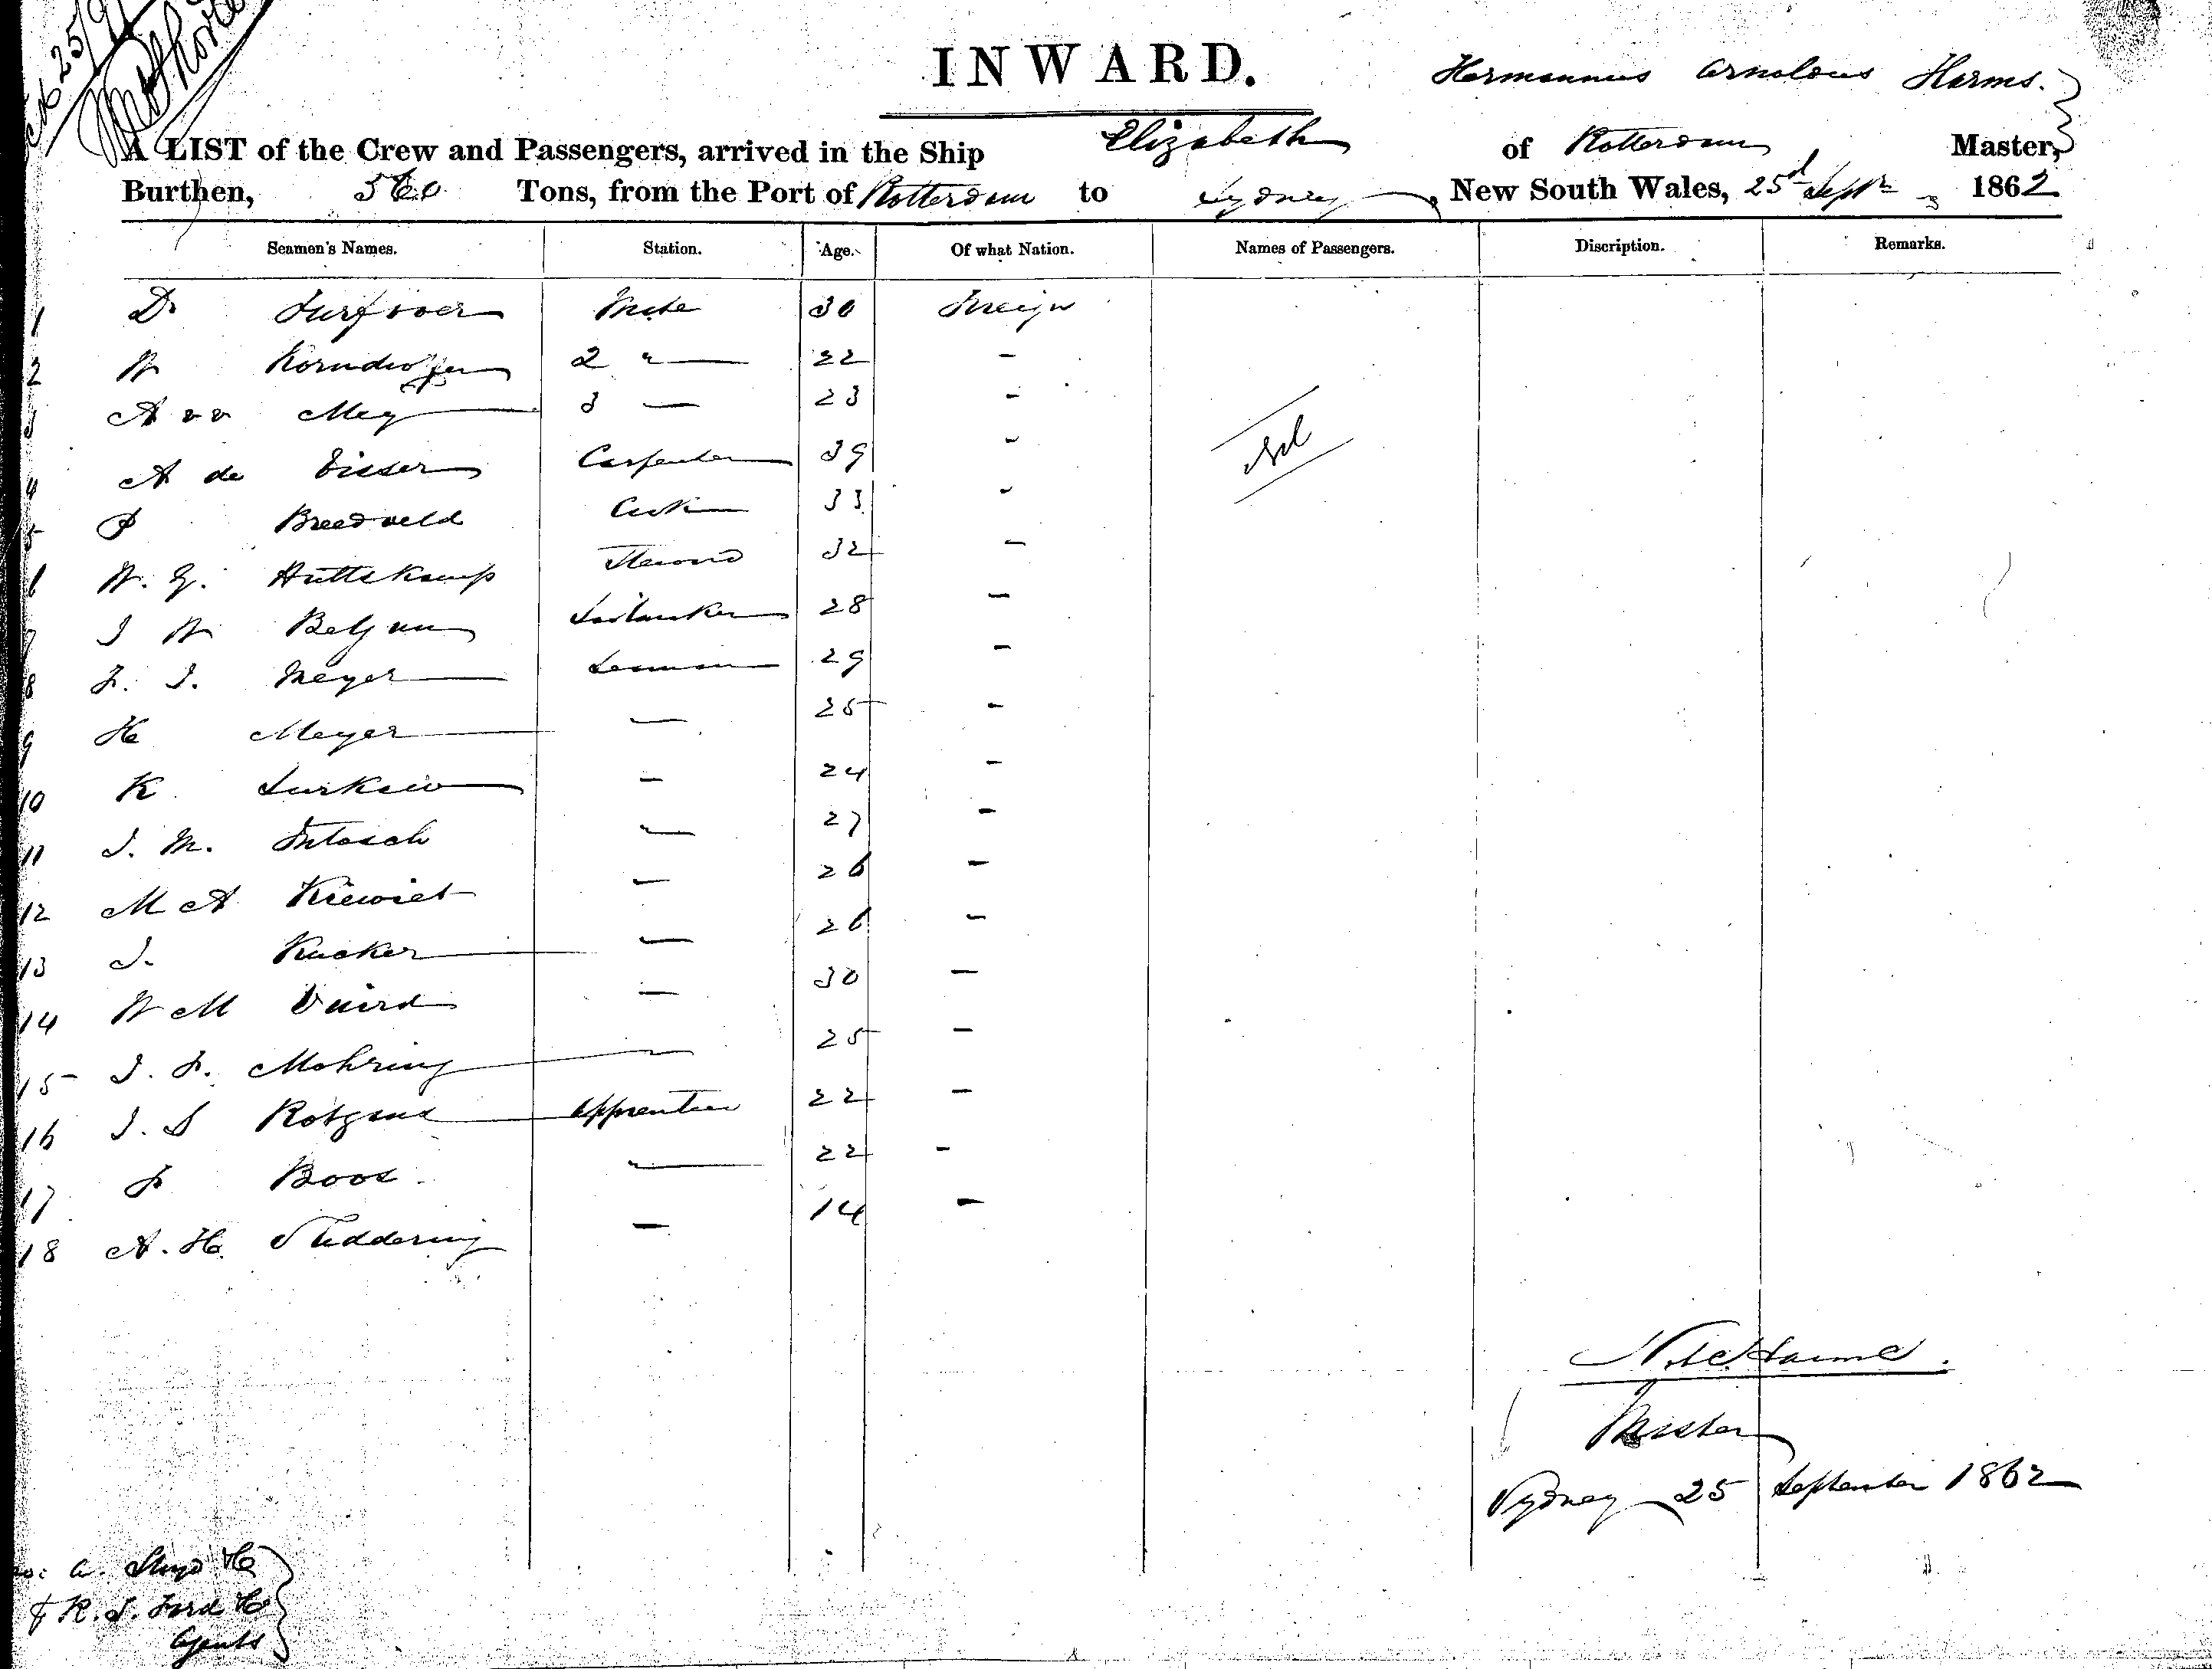 INWARD.
Hermannus Arnoldus Harms.
A LIST of the Crew and Passengers, arrived in the Ship Elizabeth of Rotterdam Master,
Burthen, 560 Tons, from the Port of Rotterdam to Sydney, New South Wales, 25d Septr 1862
Seamen's Names. Station. Age. Of what Nation. Names of Passengers. Discription. Remarks.
1 D Mate 30 Foreign
2 W 2 " 22 -
3 A v d Mey 3 — 23 -
Nil
4 A de Visser Carpenter 39 "
5 P Breedveld Cook 33 "
6 W. G. Huttekamp Steward 32 -
7 J W Sailmaker 28 -
8 F. J. Meyer Seaman 29 -
9 H Meyer — 25 -
10 K — 24 -
11 J. M. — 27 -
12 M A Kiewiet — 26 -
13 J. Kucker — 26 -
14 W M — 30 -
15 J. F. Mohring — 25 -
16 J. S Rotgans Apprentice 22 -
17 F Boos. — 22 -
18 A. H. Tiddering — 14 -
Master
Sydney 25 September 1862
& R. J. Ford & Co
Agents